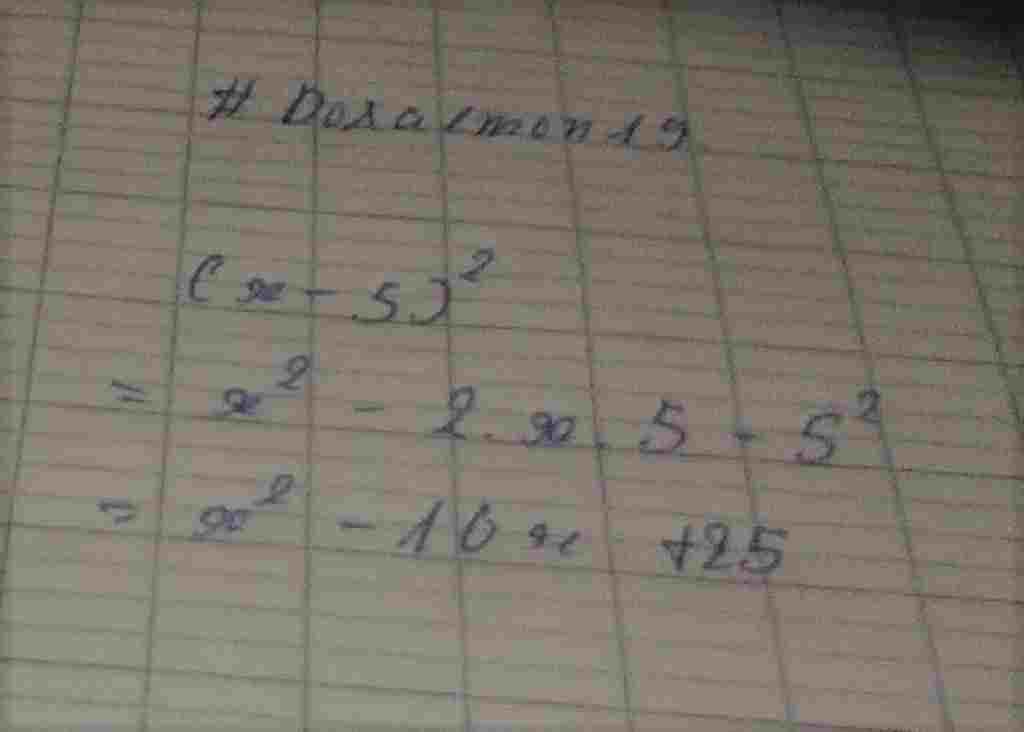 # Doraemon19
(x - 5)²
= x² - 2.x.5 - 5²
= x² - 10x +25